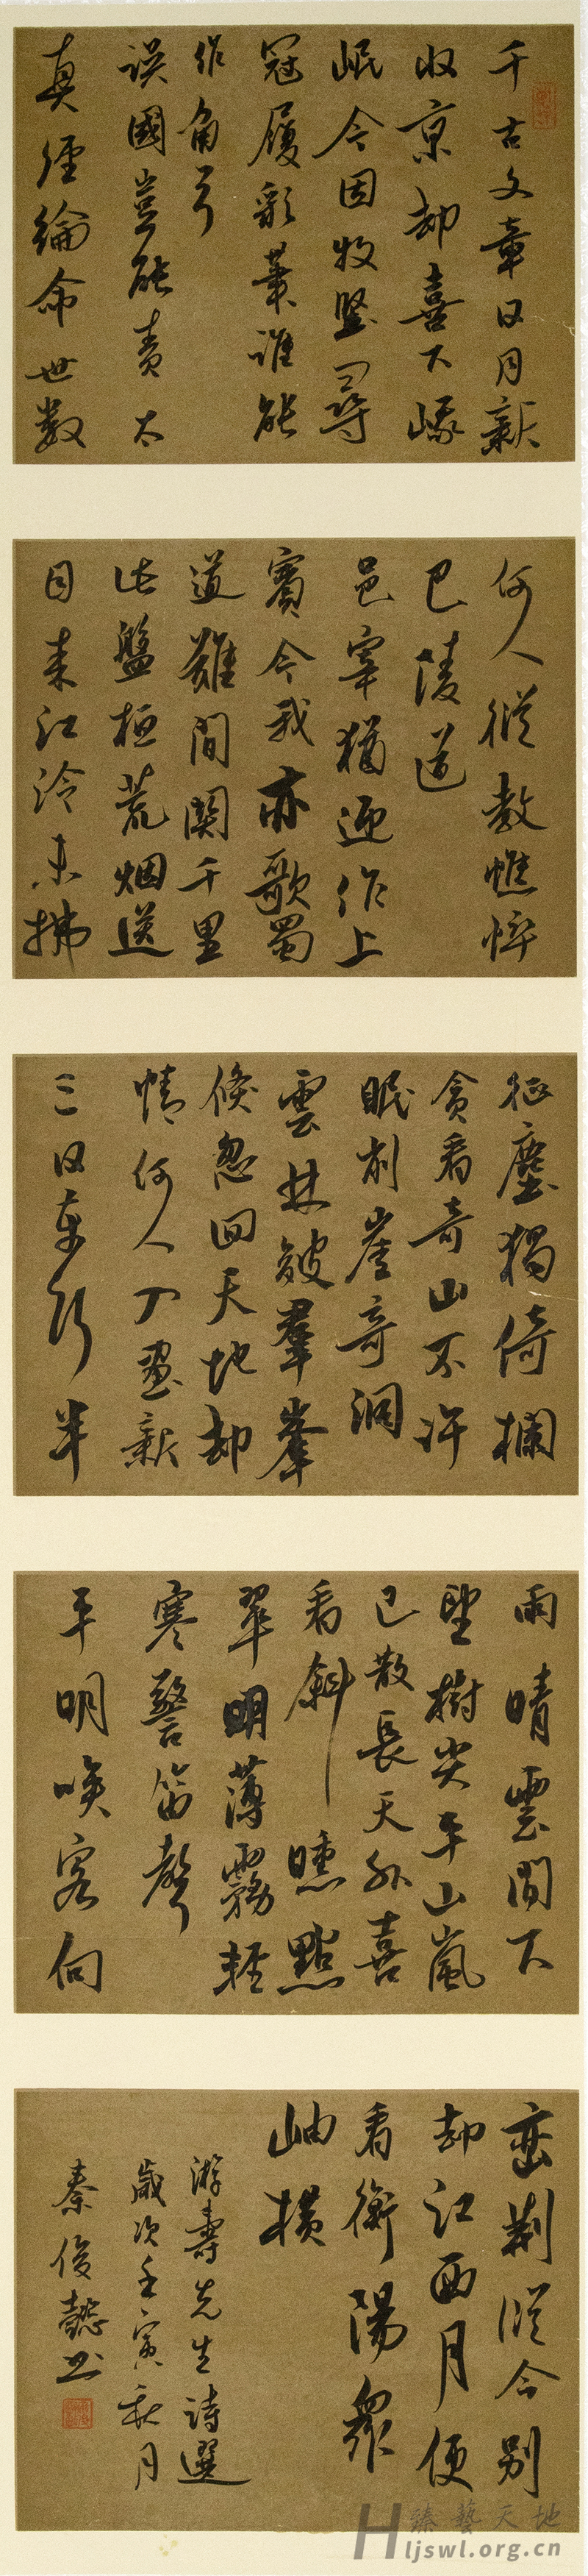 千古文章日月新
收京却喜下峨
岷今因牧竖寻
冠履彩笔谁能
作角弓
误國豈能責太
真經綸命世数
何人從教憔悴
巴陵道
邑宰猶迎作上
賓今我亦歌蜀
道難間關千里
此盤桓荒烟送
目来江冷未拂
征塵獨倚欄
貪看奇山不许
眠削崖奇洞
雲林皴羣峯
倏忽回天地却
情何人刀墨新
三日车行半
雨晴雲間下
望樹尖平山嵐
已散長天外喜
看斜曛點
翠明薄霧輕
寒警笛聲
平明唤客向
巒荆從今别
却江西月便
看衡陽眾
岫横
游壽先生詩選
歲次壬寅秋月
秦俊懿书
臻藝天地
Hljswl.org.cn